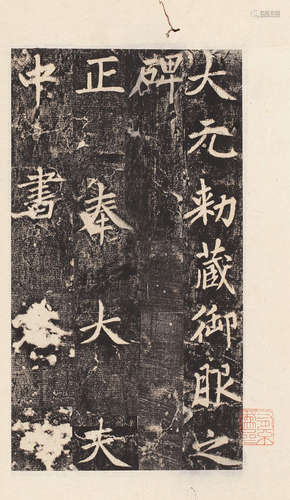 大元勅藏御服之
碑
正奉大夫
中書